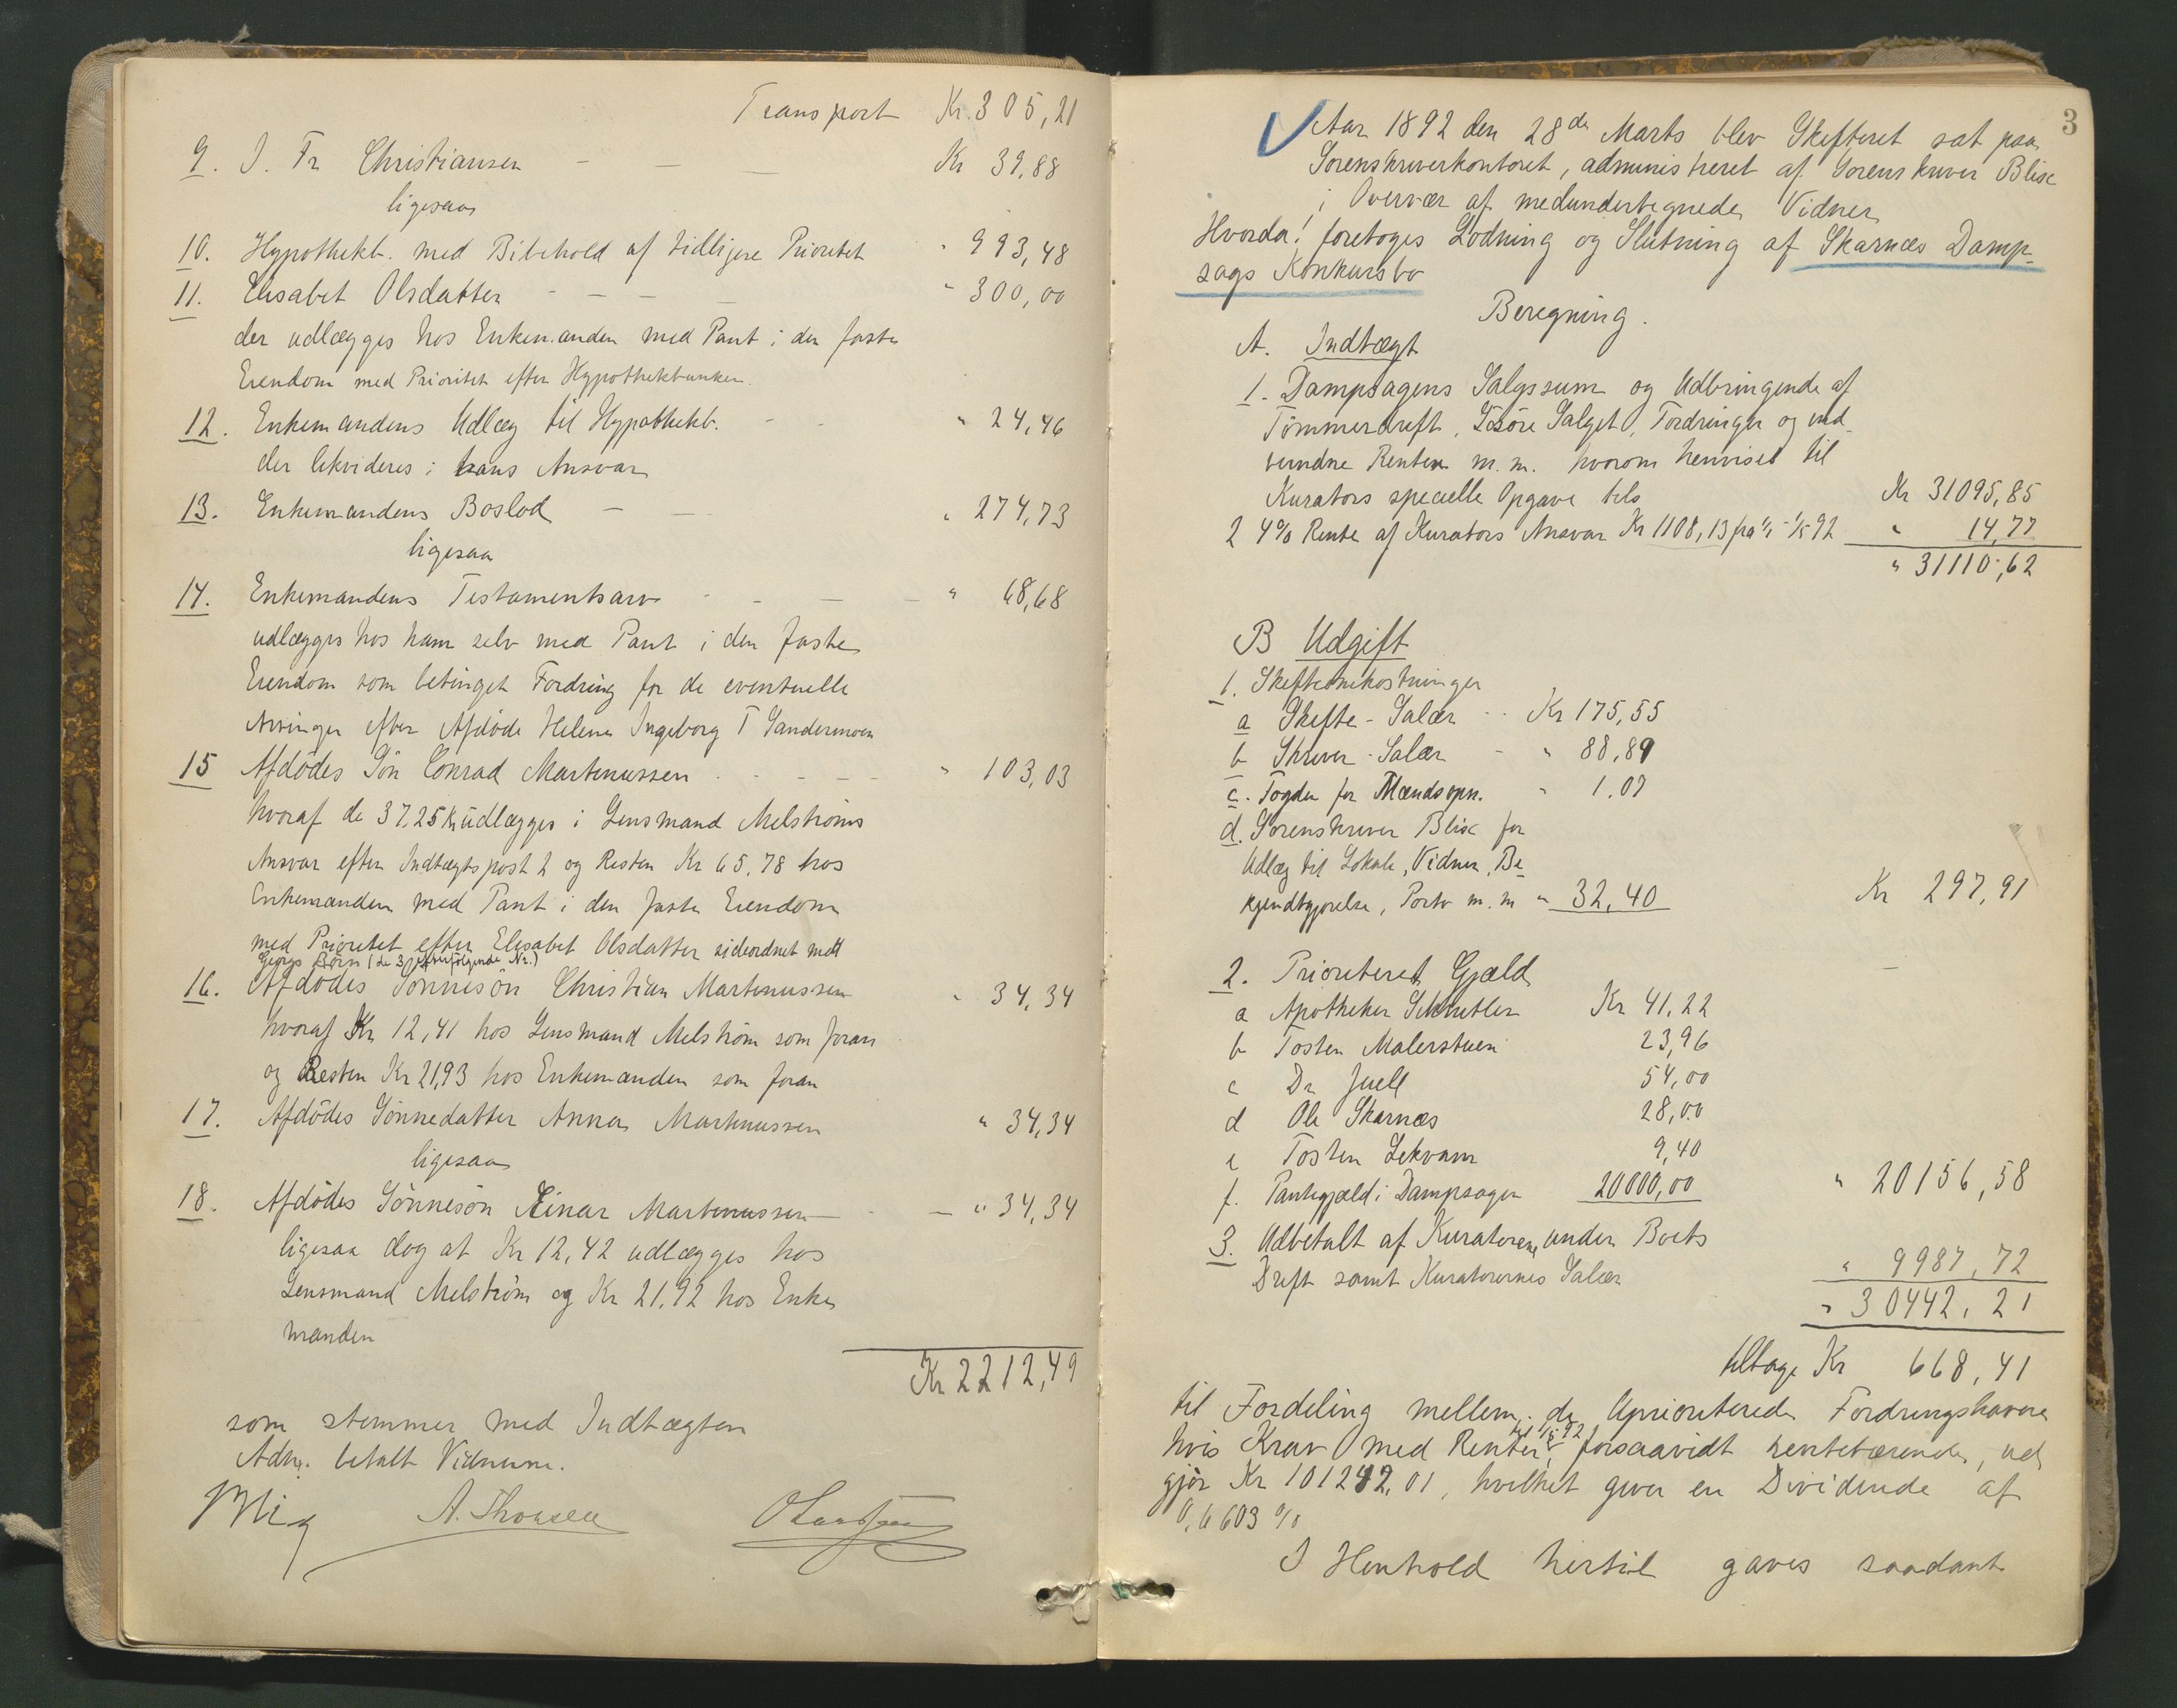 Transport Kr. 305,21
9. J. Fr Christiansen - — — Kr 39,88
ligesaa
10. Hypothekb. med Bibehold af tidligere Prioritet " 993,48
11. Elisabet Olsdatter - - - — " 300,00
der udlægges hos Enkemanden med Pant i den faste
Eiendom med Prioritet efter Hypothekbanken.
12. Enkemandens Udlæg til Hypothekb. - - " 24,46
der likvideres i hans Ansvar
13. Enkemandens Boslod — — " 274,73
ligesaa
14. Enkemandens Testamentsarv - - — — " 68,68
udlægges hos ham selv med Pant i den faste
Eiendom som betinget Fordring for de eventuelle
Arvinger efter Afdøde Helene Ingeborg T Sandermoen
15 Afdödes Sön Conrad Martinussen - - - - " 103,03
hvoraf de 37,25 Kr udlægges i Lensmand Melströms
Ansvar efter Indtægtspost 2 og Resten Kr 65,78 hos
Enkemanden med Pant i den faste Eiendom
med Prioritet efter Elisabet Olsdatter sideordnet med
Georgs Börn (de 3 efterfölgende Nr.)
16. Afdödes Sönnesön Christian Martinussen " 34,34
hvoraf Kr 12,41 hos Lensmand Melström som foran
og Resten Kr 21,93 hos Enkemanden som foran
17. Afdödes Sönnedatter Anna Martinussen " 34,34
ligesaa
18. Afdödes Sönnesön Einar Martinussen - — " 34,34
ligesaa dog at Kr 12,42 udlægges hos
Lensmand Melström og Kr 21,92 hos Enke
manden
Kr 2212,49
som stemmer med Indtægten
Adm. betalt Vidnerne.
Blix A. Thonsen
3
Aar 1892 den 28de Marts blev Skifteret sat paa
Sorenskriverkontoret, administreret af Sorenskriver Blix
i Overvær af medundertegnede Vidner
Hvorda! foretoges Lodning og Slutning af Skarnæs Damp-
sags Konkursbo
Beregning.
A. Indtægt
1. Dampsagens Salgssum og Udbringende af
Tömmerdrift, Lösöre Salget, Fordringer og ind-
vundne Renter m.m. hvorom henvises til
Kurators specielle Opgave bels Kr 31095,85
2 4% Rente af Kurators Ansvar Kr 1108,13 fra 1/1 - 1/5 92 " 14,77
" 31110,62
B Udgift
1. Skifteomkostninger
a Skifte-Salær - - Kr 175,55
b Skriver-Salær - " 88,89
c. Fogden for Mandsopn. " 1.07
d. Sorenskriver Blix for
Udlæg til Lokale, Vidner, Be-
kjendtgjørelse, Porto m.m " 32,40 Kr 297,91
2. Prioriteret Gjæld
a Apotheker Kr 41,22
b Tosten Malerstuen 23,96
c Dr Juell 54,00
d Ole Skarnæs 28,00
e Tosten Lekvam 9,40
f. Pantegjæld i Dampsagen 20000,00 " 20156,58
3. Udbetalt af Kuratorerne under Boets
Drift samt Kuratorernes Salær " 9987,72
" 30442,21
tilbage Kr 668,41
til Fordeling mellem de Uprioriterede Fordringshavere
hvis Krav med Renter til 1/5 92 forsaavidt rentebærende, ud
gjør Kr 101242,01, hvilket giver en Dividende af
0,6603 %
I Henhold hertil gaves saadant